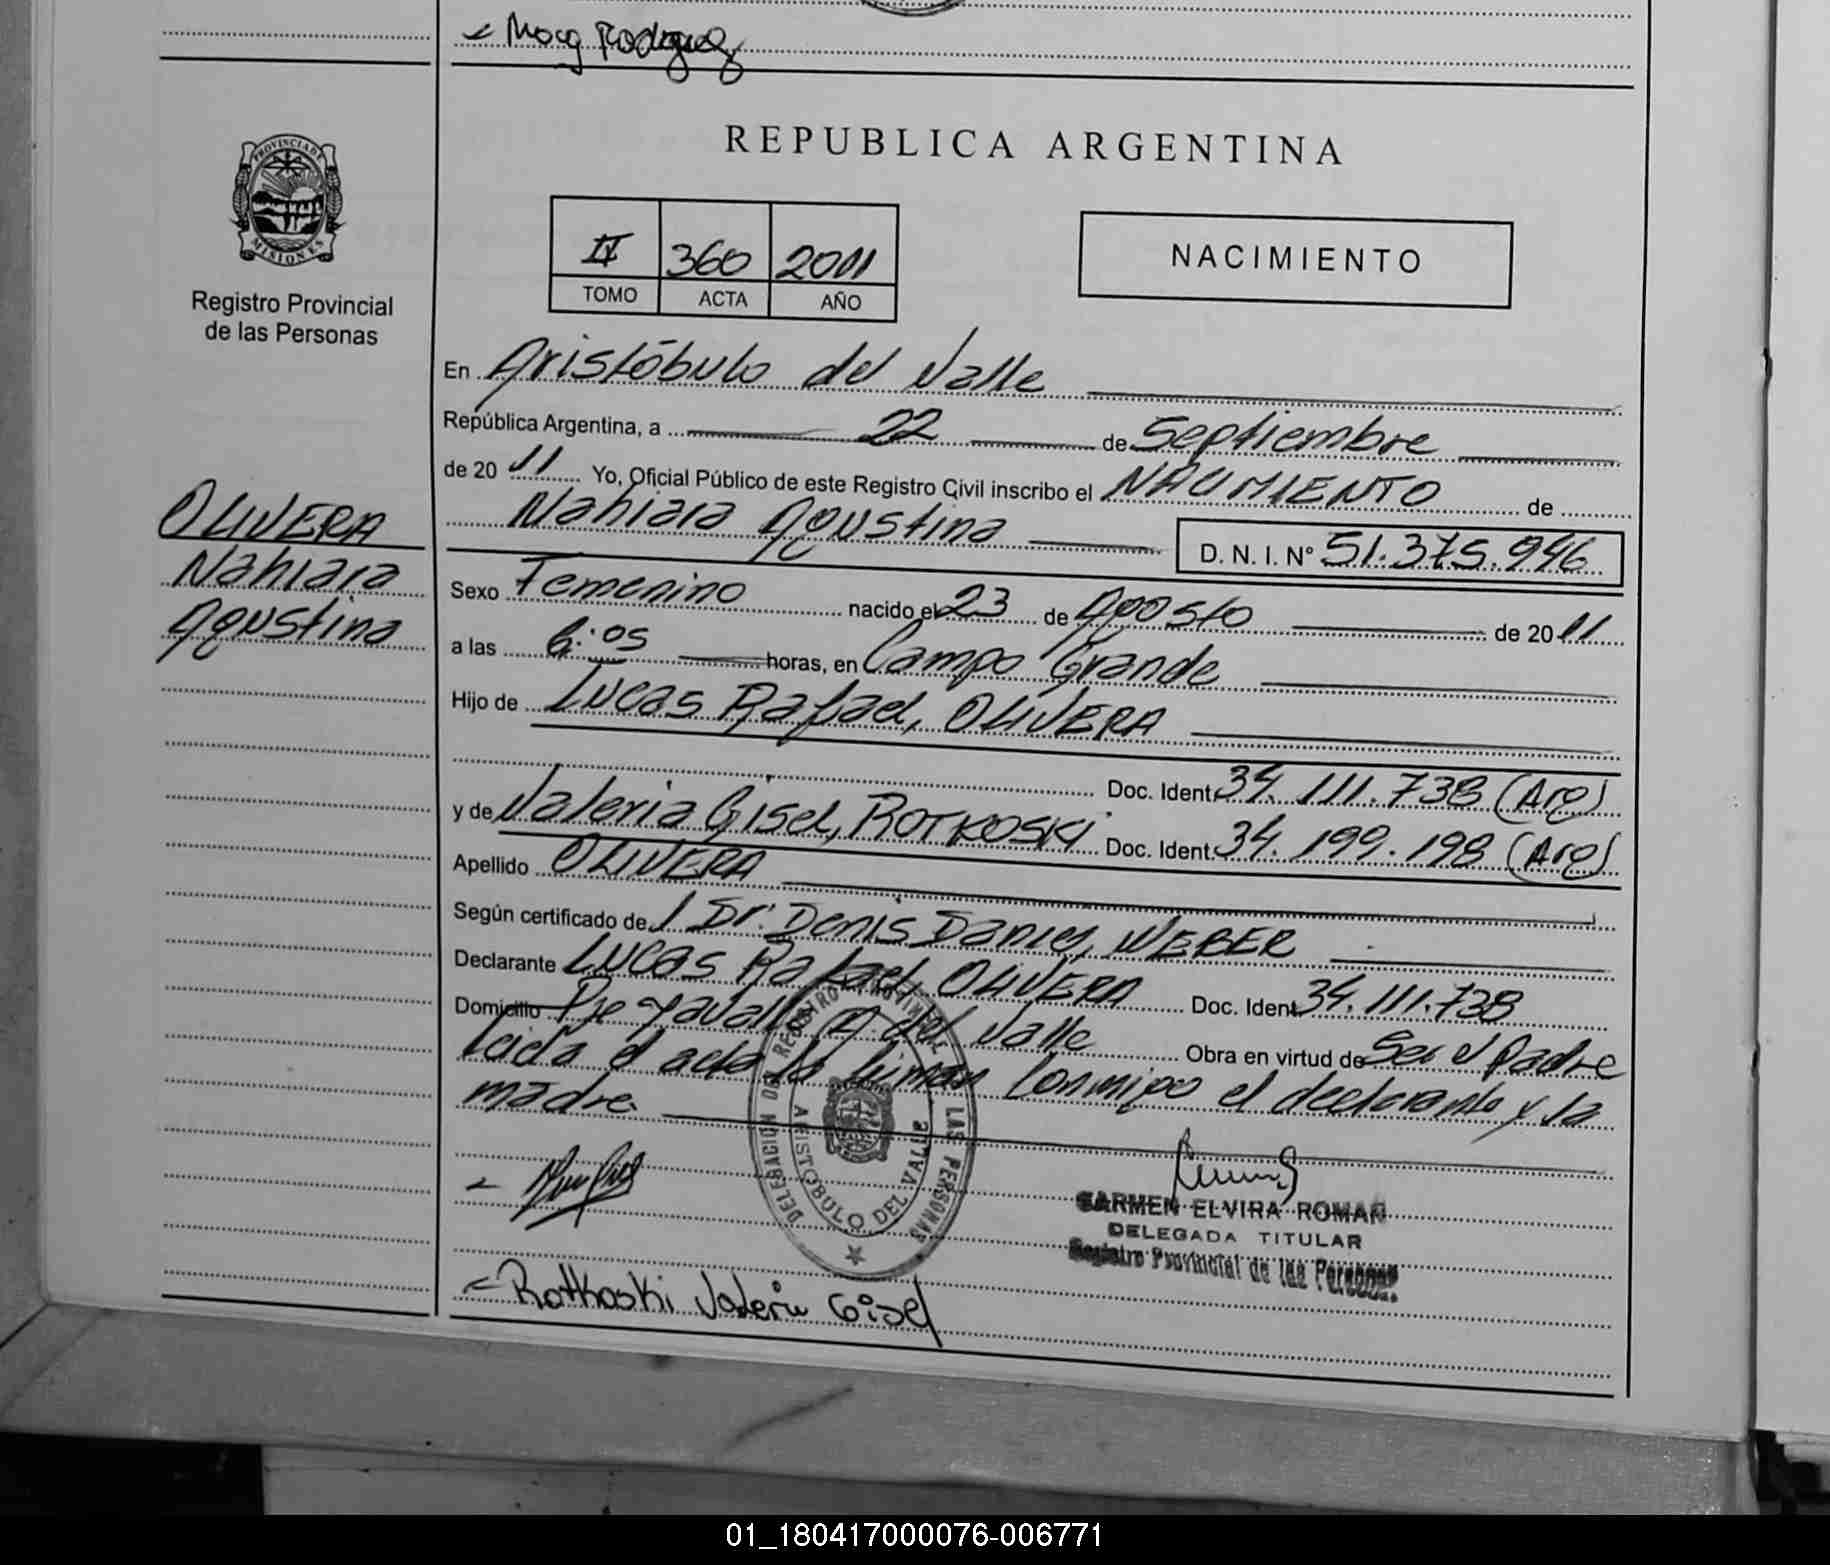 Rodriguez
REPUBLICA ARGENTINA
PROVINCIA DE
MISIONES
Registro Provincial
de las Personas
II 360 2011
TOMO ACTA AÑO
NACIMIENTO
En Aristóbulo del Valle
República Argentina, a 22 de Septiembre
de 20 11 Yo, Oficial Público de este Registro Civil inscribo el NACIMIENTO de
Nahiara Agustina D. N. I. N° 51.375.946
OLIVERA
Nahiara
Agustina
Sexo Femenino nacido el 23 de Agosto de 20 11
a las 6:05 horas, en Campo Grande
Hijo de Lucas Rafael, OLIVERA
Doc. Ident. 34.111.738 (Arg)
y de Valeria Gisel, ROTKOSKI Doc. Ident. 34.199.198 (Arg)
Apellido OLIVERA
Según certificado de / Dr. Denis Daniel, WEBER
Declarante Lucas Rafael, OLIVERA Doc. Ident. 34.111.738
Domicilio A. del Valle Obra en virtud de Ser el Padre
Leida el acta la firman conmigo el declarante y la
madre
DELEGACION DEL REGISTRO PROVINCIAL DE LAS PERSONAS
ARISTOBULO DEL VALLE
CARMEN ELVIRA ROMAN
DELEGADA TITULAR
Registro Provincial de las Personas
Rotkoski Valeria Gisel
01_180417000076-006771